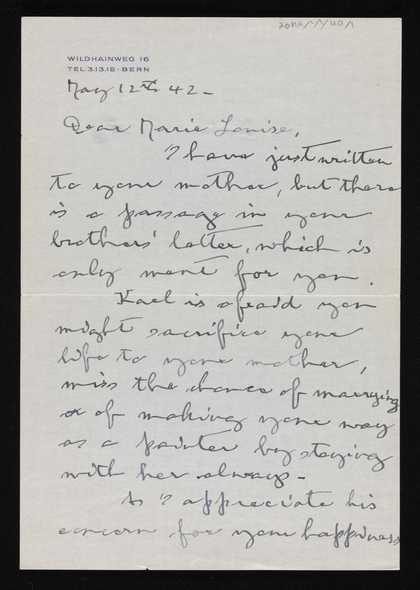 WILDHAINWEG 16
TEL. 3.13.15 - BERN
May 12th 42 -
Dear Marie Louise,
I have just written
to your mother, but there
is a passage in your
brothers' letter, which is
only ment for you.
Karl is afraid you
might sacrifice your
life to your mother,
miss the chance of marrying
or of making your way
as a painter by staying
with her always -
As I appreciate his
concern for your happiness